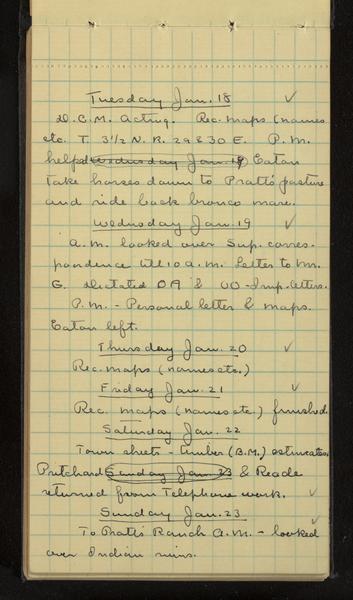 Tuesday Jan. 18 ✓
D.C.M. Acting. Rec. maps (names
etc. T. 3½ N. R. 29 & 30 E. P.M.
helped Wednesday Jan. 19 Eaton
take horses down to Pratt's pasture
and ride back bronco mare.
Wednesday Jan. 19 ✓
A.M. looked over Sup. corres-
pondence till 10 a.m. Letter to Mr.
G. Dictated OA & UO-Imp. letters.
P.M. - Personal letter & maps.
Eaton left.
Thursday Jan. 20 ✓
Rec. maps (names etc.)
Friday Jan. 21 ✓
Rec. maps (names etc.) finished.
Saturday Jan. 22
Town sheets - timber (B.M.) estimates.
Pritchard Sunday Jan. 23 & Reade
returned from Telephone work. ✓
Sunday Jan. 23 ✓
To Pratt's Ranch A.M. - looked
over Indian ruins.